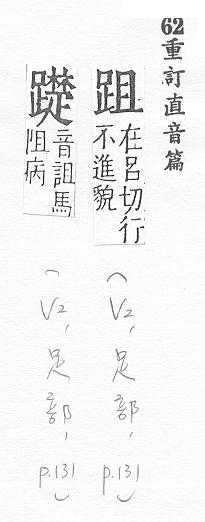 62重訂直音篇
跙
在呂切行
不進貌
(V2,足部,p.131)
音詛馬
阻病
(V2,足部,p.131)